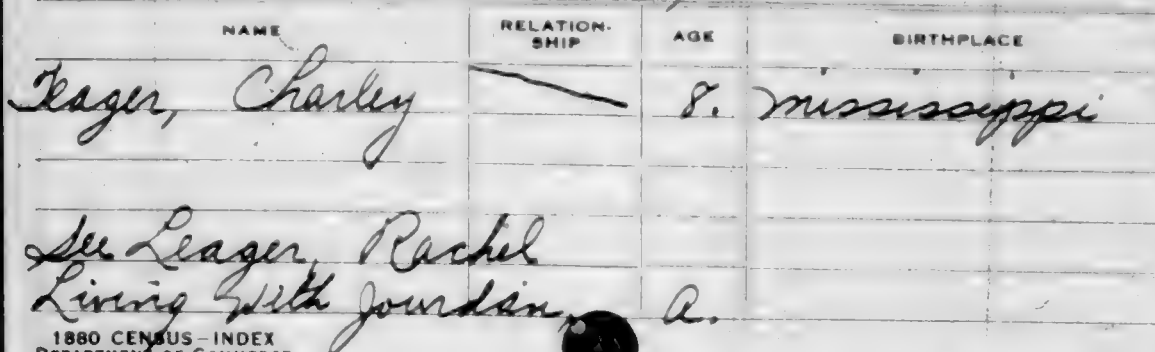 NAME RELATION-SHIP AGE BIRTHPLACE
Teager, Charley 8. Mississippi
See Leager, Rachel
Living With Jourdan, A.
1880 CENSUS-INDEX
DEPARTMENT OF COMMERCE